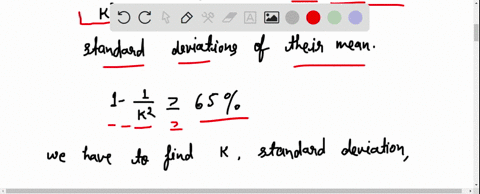 K
standard deviations of their mean.
1 - 1/K² ≥ 65%
we have to find K, standard deviation,